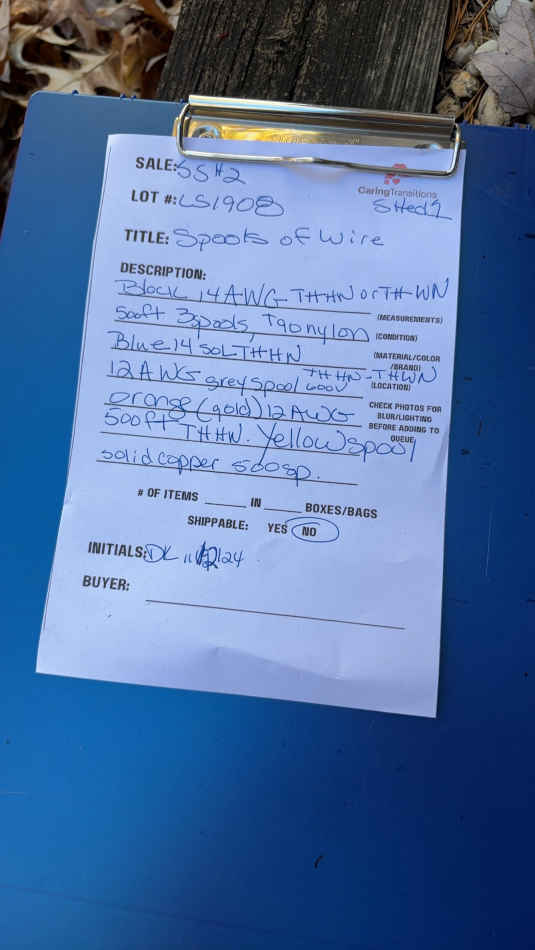 SALE: SSH2
CaringTransitions
LOT #: LS1908 SHed1
TITLE: Spools of Wire
DESCRIPTION:
Black 14 AWG THHN or THWN
(MEASUREMENTS)
500ft 3spools, T90nylon
(CONDITION)
Blue 14 SOL THHN
(MATERIAL/COLOR
/BRAND)
12 AWG grey spool 600V THHN-THWN
(LOCATION)
orange (gold) 12 AWG
CHECK PHOTOS FOR
BLUR/LIGHTING
BEFORE ADDING TO
QUEUE
500ft THHN. Yellow spool
solid copper 500sp.
# OF ITEMS ______ IN _____ BOXES/BAGS
SHIPPABLE: YES NO
INITIALS: DK 11/12/24
BUYER: